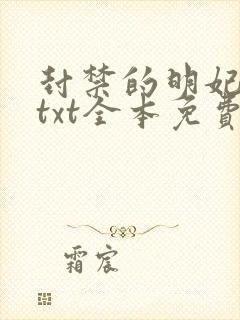 封禁的明妃
txt全本免費
霜宸